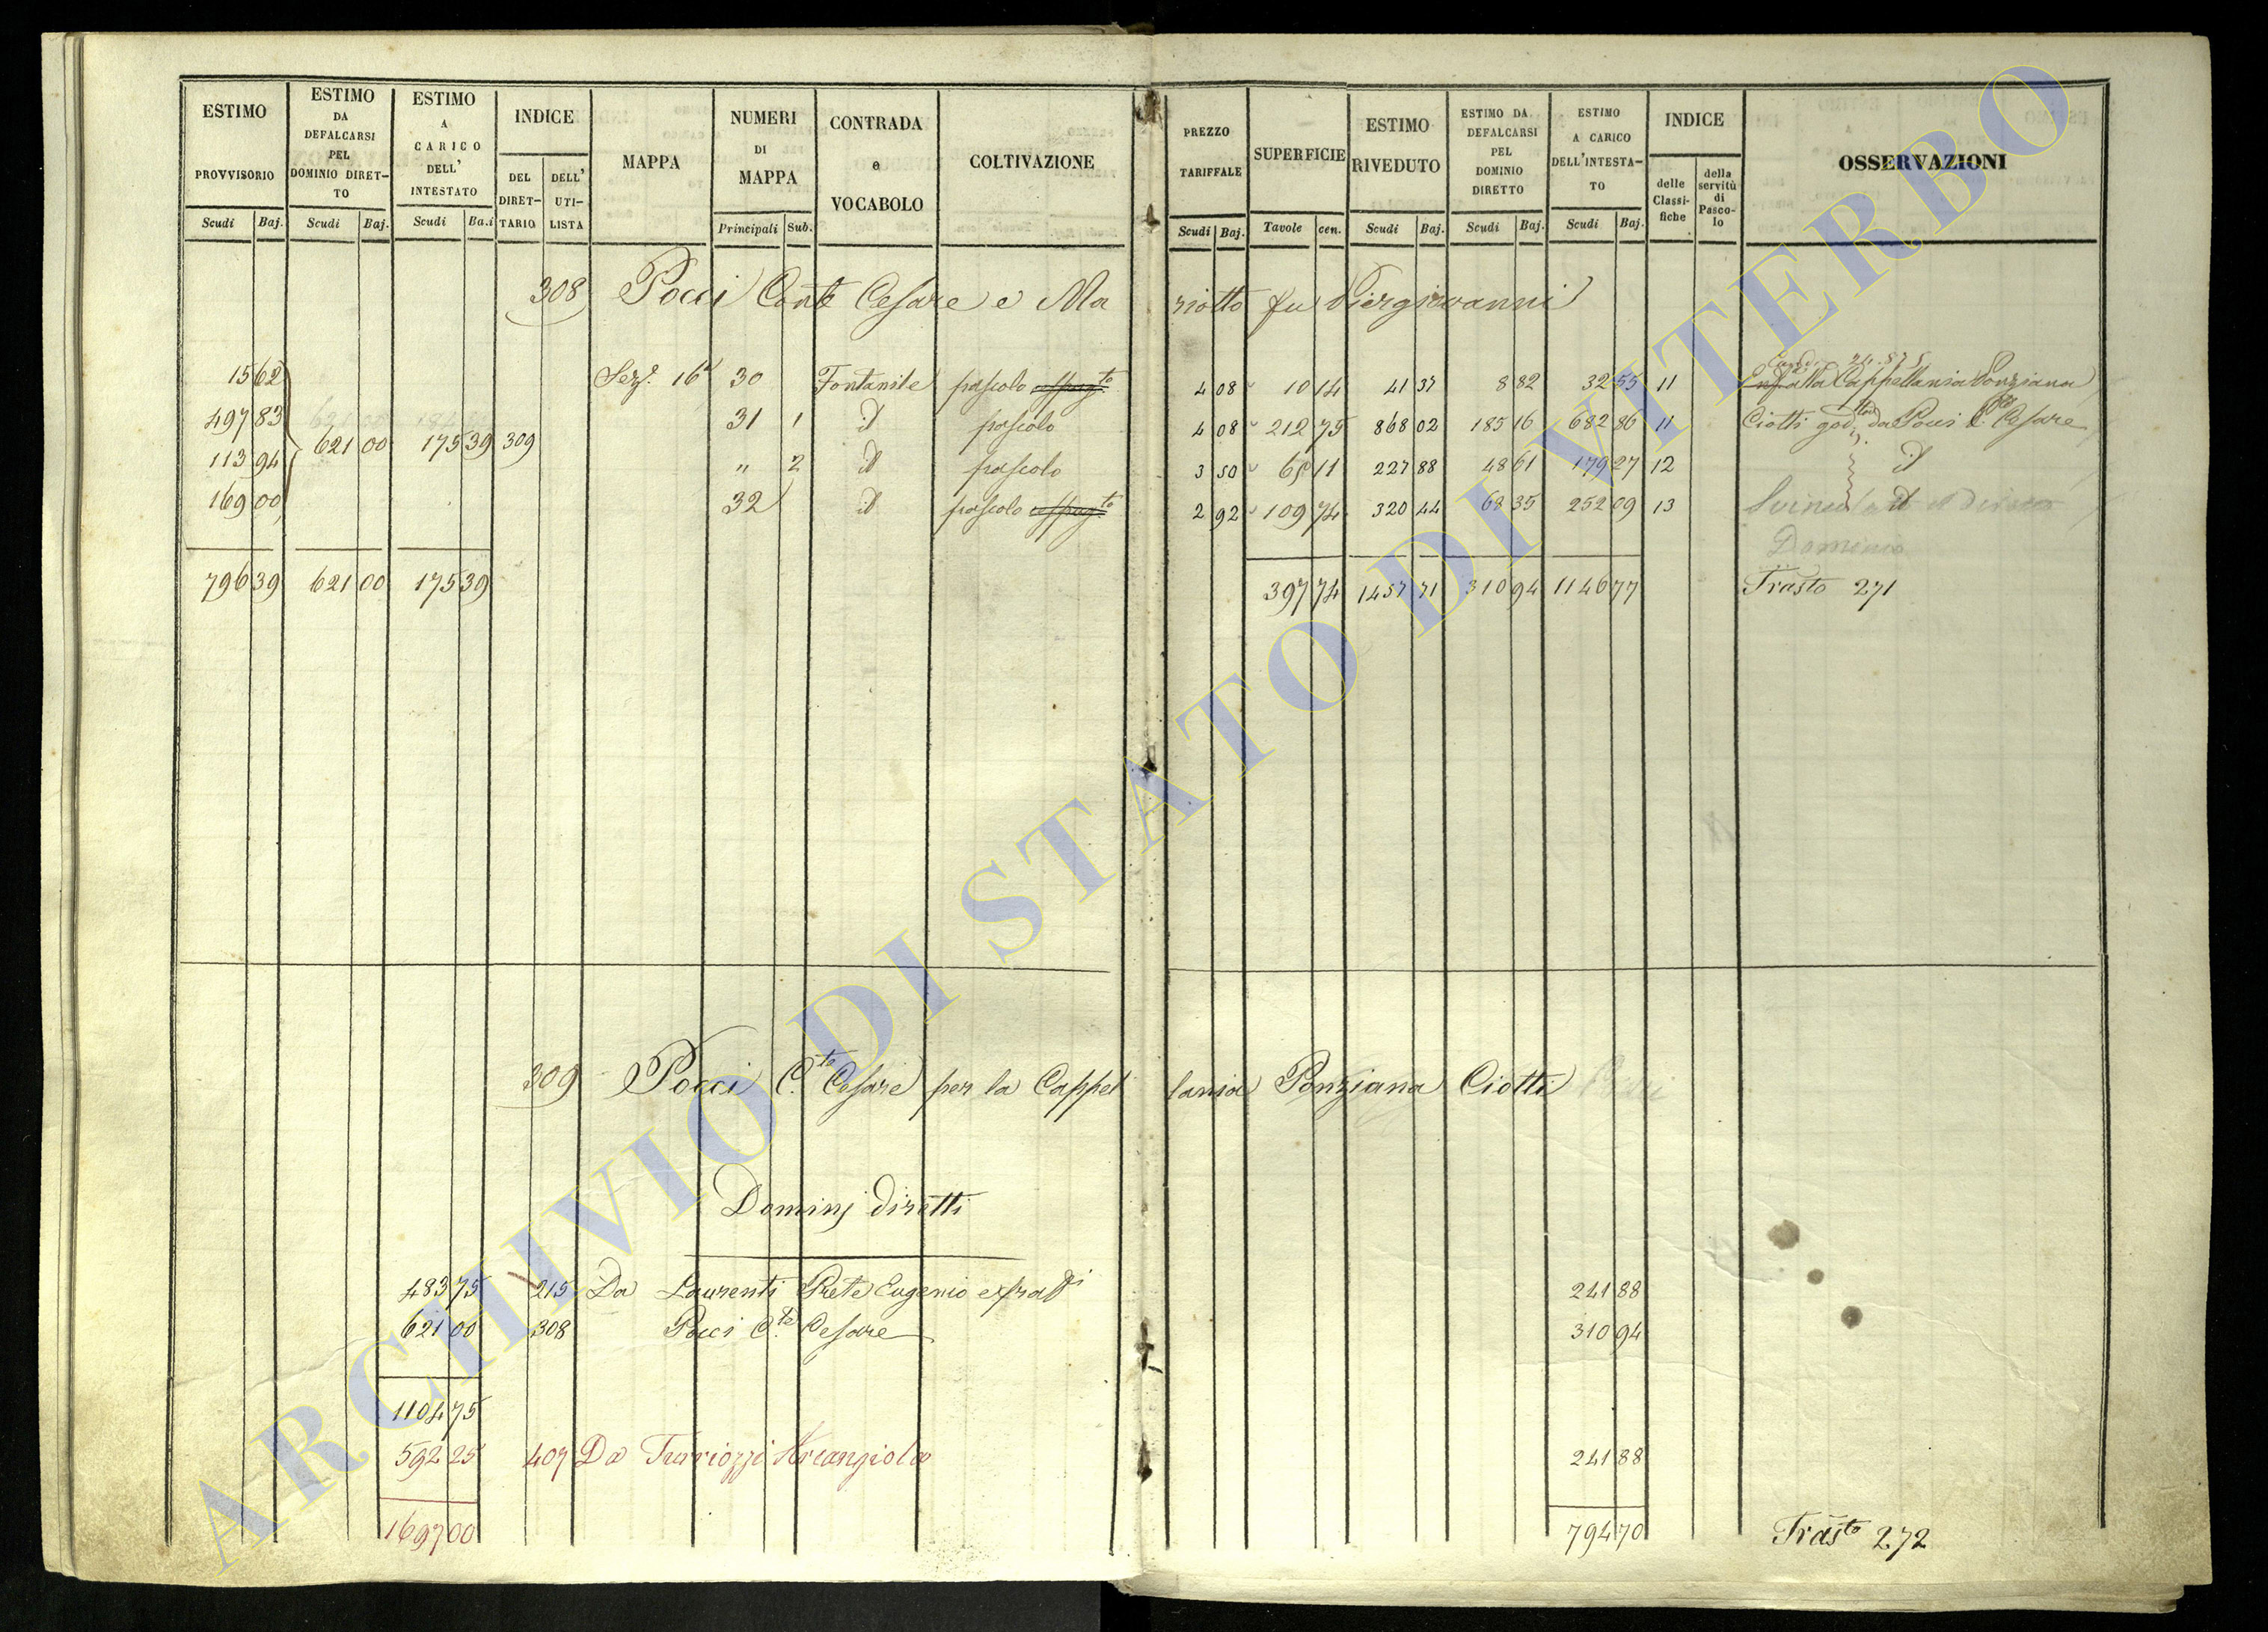 ESTIMO PROVVISORIO Scudi Baj.
ESTIMO DA DEFALCARSI PEL DOMINIO DIRET-TO Scudi Baj.
ESTIMO A CARICO DELL' INTESTATO Scudi Ba.i
INDICE DEL DIRET-TARIO DELL' UTI-LISTA
MAPPA
NUMERI DI MAPPA Principali Sub.
CONTRADA e VOCABOLO
COLTIVAZIONE
PREZZO TARIFFALE Scudi Baj.
SUPERFICIE Tavole cen.
ESTIMO RIVEDUTO Scudi Baj.
ESTIMO DA DEFALCARSI PEL DOMINIO DIRETTO Scudi Baj.
ESTIMO A CARICO DELL'INTESTA-TO Scudi Baj.
INDICE delle Classi-fiche della servitù di Pasco-lo
OSSERVAZIONI
308 Pocci Conte Cesare e Mariotto fu Piergiovanni
15 62 Sez.e 16a 30 Fontanile pascolo 4 08 10 14 41 37 8 82 32 55 11 alla Cappellania Ponziana
497 83 31 1 id pascolo 4 08 212 75 868 02 185 16 682 86 11 Ciotti god. da Pocci C.te Cesare
621 00 175 39 309
113 94 " 2 id pascolo 3 50 65 11 227 88 48 61 179 27 12 id
169 00 32 id pascolo 2 92 109 74 320 44 68 35 252 09 13 id
Dominio
796 39 621 00 175 39 397 74 1457 71 310 94 1146 77 Trasto 271
309 Pocci C.te Cesare per la Cappellania Ponziana Ciotti
Dominj diretti
483 75 215 Da Laurenti Prete Eugenio e fratti 241 88
621 00 308 Pocci C.te Cesare 310 94
1104 75
592 25 407 Da Turriozzi Arcangiola 241 88
1697 00 794 70 Trasto 272
ARCHIVIO DI STATO DI VITERBO